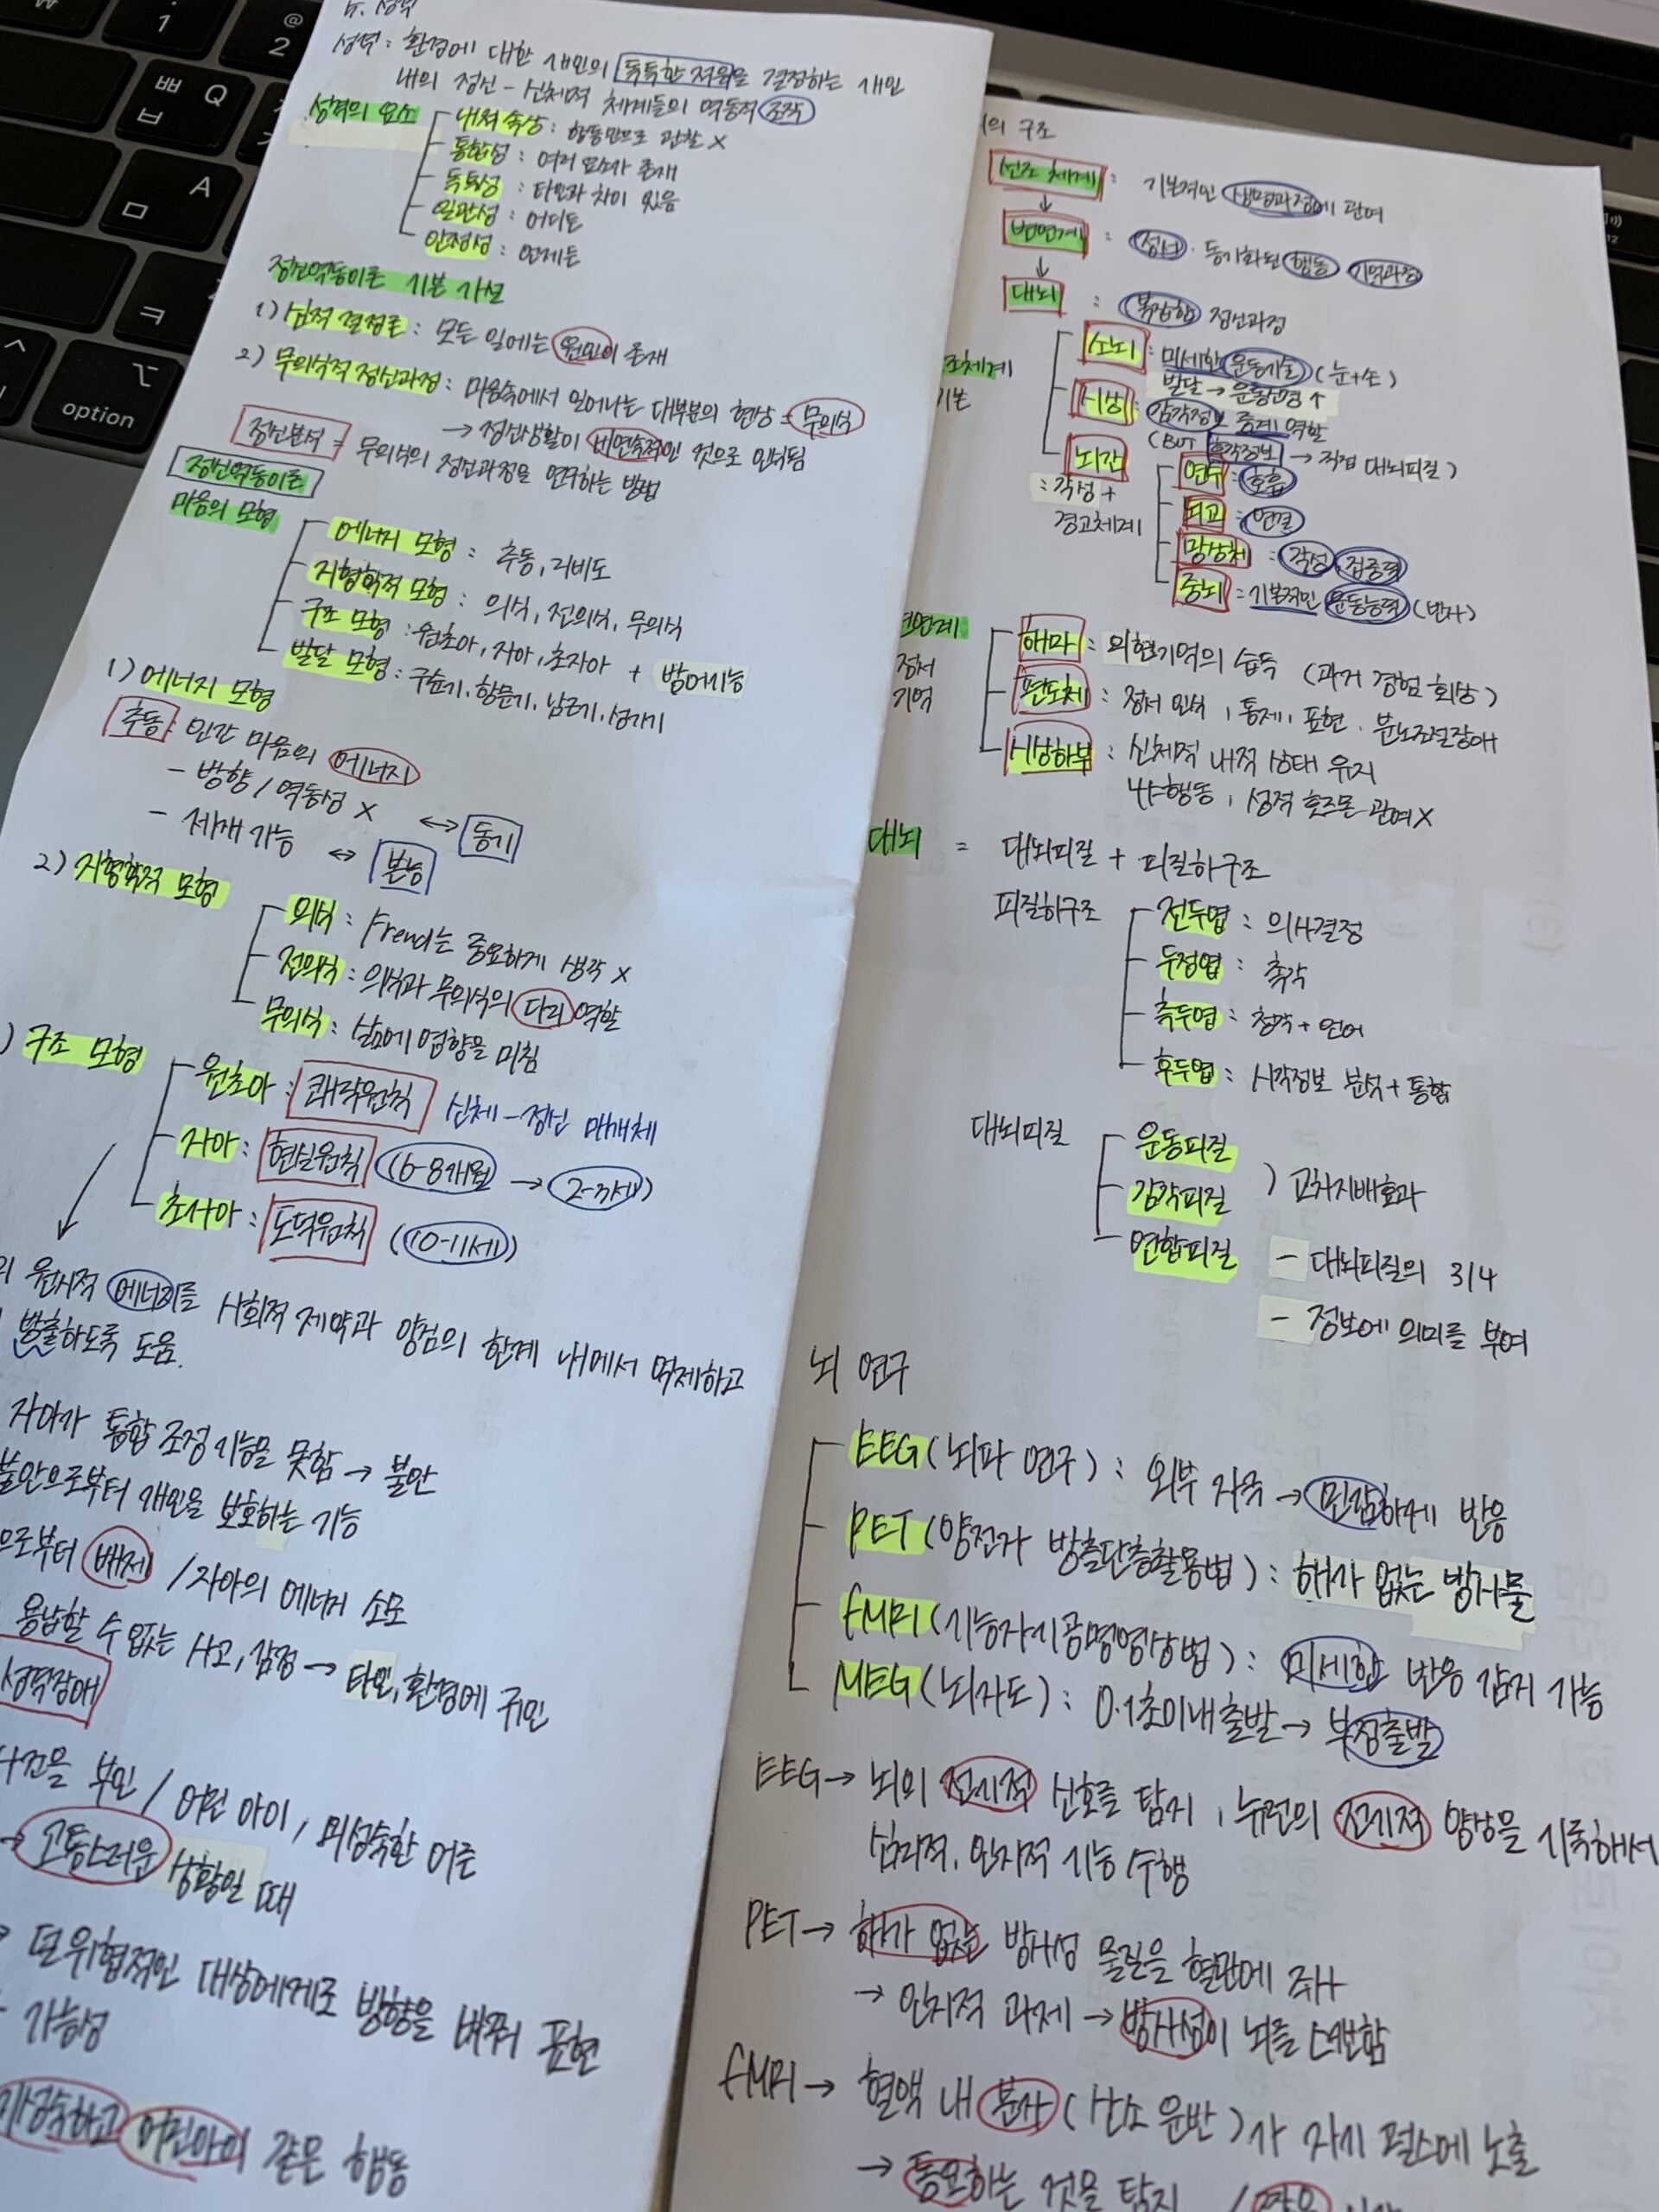 성격 : 환경에 대한 개인의 독특한 적응을 결정하는 개인
내의 정신 - 신체적 체계들의 역동적 조직
성격의 요소
내적 속성 : 행동만으로 관찰 X
통합성 : 여러 요소가 존재
독특성 : 타인과 차이 있음
일관성 : 어디든
안정성 : 언제든
정신역동이론 기본 가설
1) 심적 결정론 : 모든 일에는 원인이 존재
2) 무의식적 정신과정 : 마음속에서 일어나는 대부분의 현상 = 무의식
→ 정신생활이 비연속적인 것으로 인식됨
정신분석 = 무의식의 정신과정을 연구하는 방법
정신역동이론
마음의 모형
에너지 모형 : 추동, 리비도
지형학적 모형 : 의식, 전의식, 무의식
구조 모형 : 원초아, 자아, 초자아 + 방어기능
발달 모형 : 구순기, 항문기, 남근기, 성기기
1) 에너지 모형
추동 : 인간 마음의 에너지
- 방향 / 역동성 X ↔ 동기
- 제재 가능 ↔ 본능
2) 지형학적 모형
의식 : Freud는 중요하게 생각 X
전의식 : 의식과 무의식의 다리 역할
무의식 : 삶에 영향을 미침
) 구조 모형
원초아 : 쾌락원칙 신체-정신 매개체
자아 : 현실원칙 (6-8개월 → 2-3세)
초자아 : 도덕원칙 (10-11세)
의 원시적 에너지를 사회적 제약과 양심의 한계 내에서 억제하고
방출하도록 도움.
자아가 통합 조정 기능을 못함 → 불안
불안으로부터 개인을 보호하는 기능
으로부터 배제 / 자아의 에너지 소모
용납할 수 없는 사고, 감정 → 타인, 환경에 귀인
성격장애
사건을 부인 / 어린 아이, 미성숙한 어른
→ 고통스러운 상황일 때
덜 위협적인 대상에게로 방향을 바꿔 표현
가능성
미성숙하고 어린아이 같은 행동
의 구조
선조 체계 : 기본적인 생명과정에 관여
↓
변연계 : 정서, 동기화된 행동 기억과정
↓
대뇌 : 복잡한 정신과정
조체계
기본
소뇌 : 미세한 운동기술 (눈+손)
발달 → 운동신경 ↑
시상 : 감각정보 중계 역할
(BUT 후각정보 → 직접 대뇌피질)
뇌간
: 각성 +
경고체계
연수 : 호흡
뇌교 : 연결
망상체 : 각성, 집중력
중뇌 : 기본적인 운동능력 (반사)
변연계
정서
기억
해마 : 외현기억의 습득 (과거 경험 회상)
편도체 : 정서 인식, 통제, 표현. 분노조절장애
시상하부 : 신체적 내적 상태 유지
성행동, 성적 호르몬 관여 X
대뇌 = 대뇌피질 + 피질하구조
피질하구조
전두엽 : 의사결정
두정엽 : 촉각
측두엽 : 청각 + 언어
후두엽 : 시각정보 분석 + 통합
대뇌피질
운동피질
감각피질
) 교차지배효과
연합피질 - 대뇌피질의 3/4
- 정보에 의미를 부여
뇌 연구
EEG (뇌파 연구) : 외부 자극 → 민감하게 반응
PET (양전자 방출단층촬용법) : 해가 없는 방사물
fMRI (기능자기공명영상법) : 미세한 반응 감지 가능
MEG (뇌자도) : 0.1초이내 출발 → 부정출발
EEG → 뇌의 전기적 신호를 탐지, 뉴런의 전기적 양상을 기록해서
심리적, 인지적 기능 수행
PET → 해가 없는 방사성 물질을 혈관에 주사
→ 인지적 과제 → 방사성이 뇌를 스캔함
fMRI → 혈액 내 분자 (산소 운반)가 자기 펄스에 노출
→ 동요하는 것을 탐지
1
@
2
ㅃ Q
ㅂ
A
ㅁ
ㅋ
option